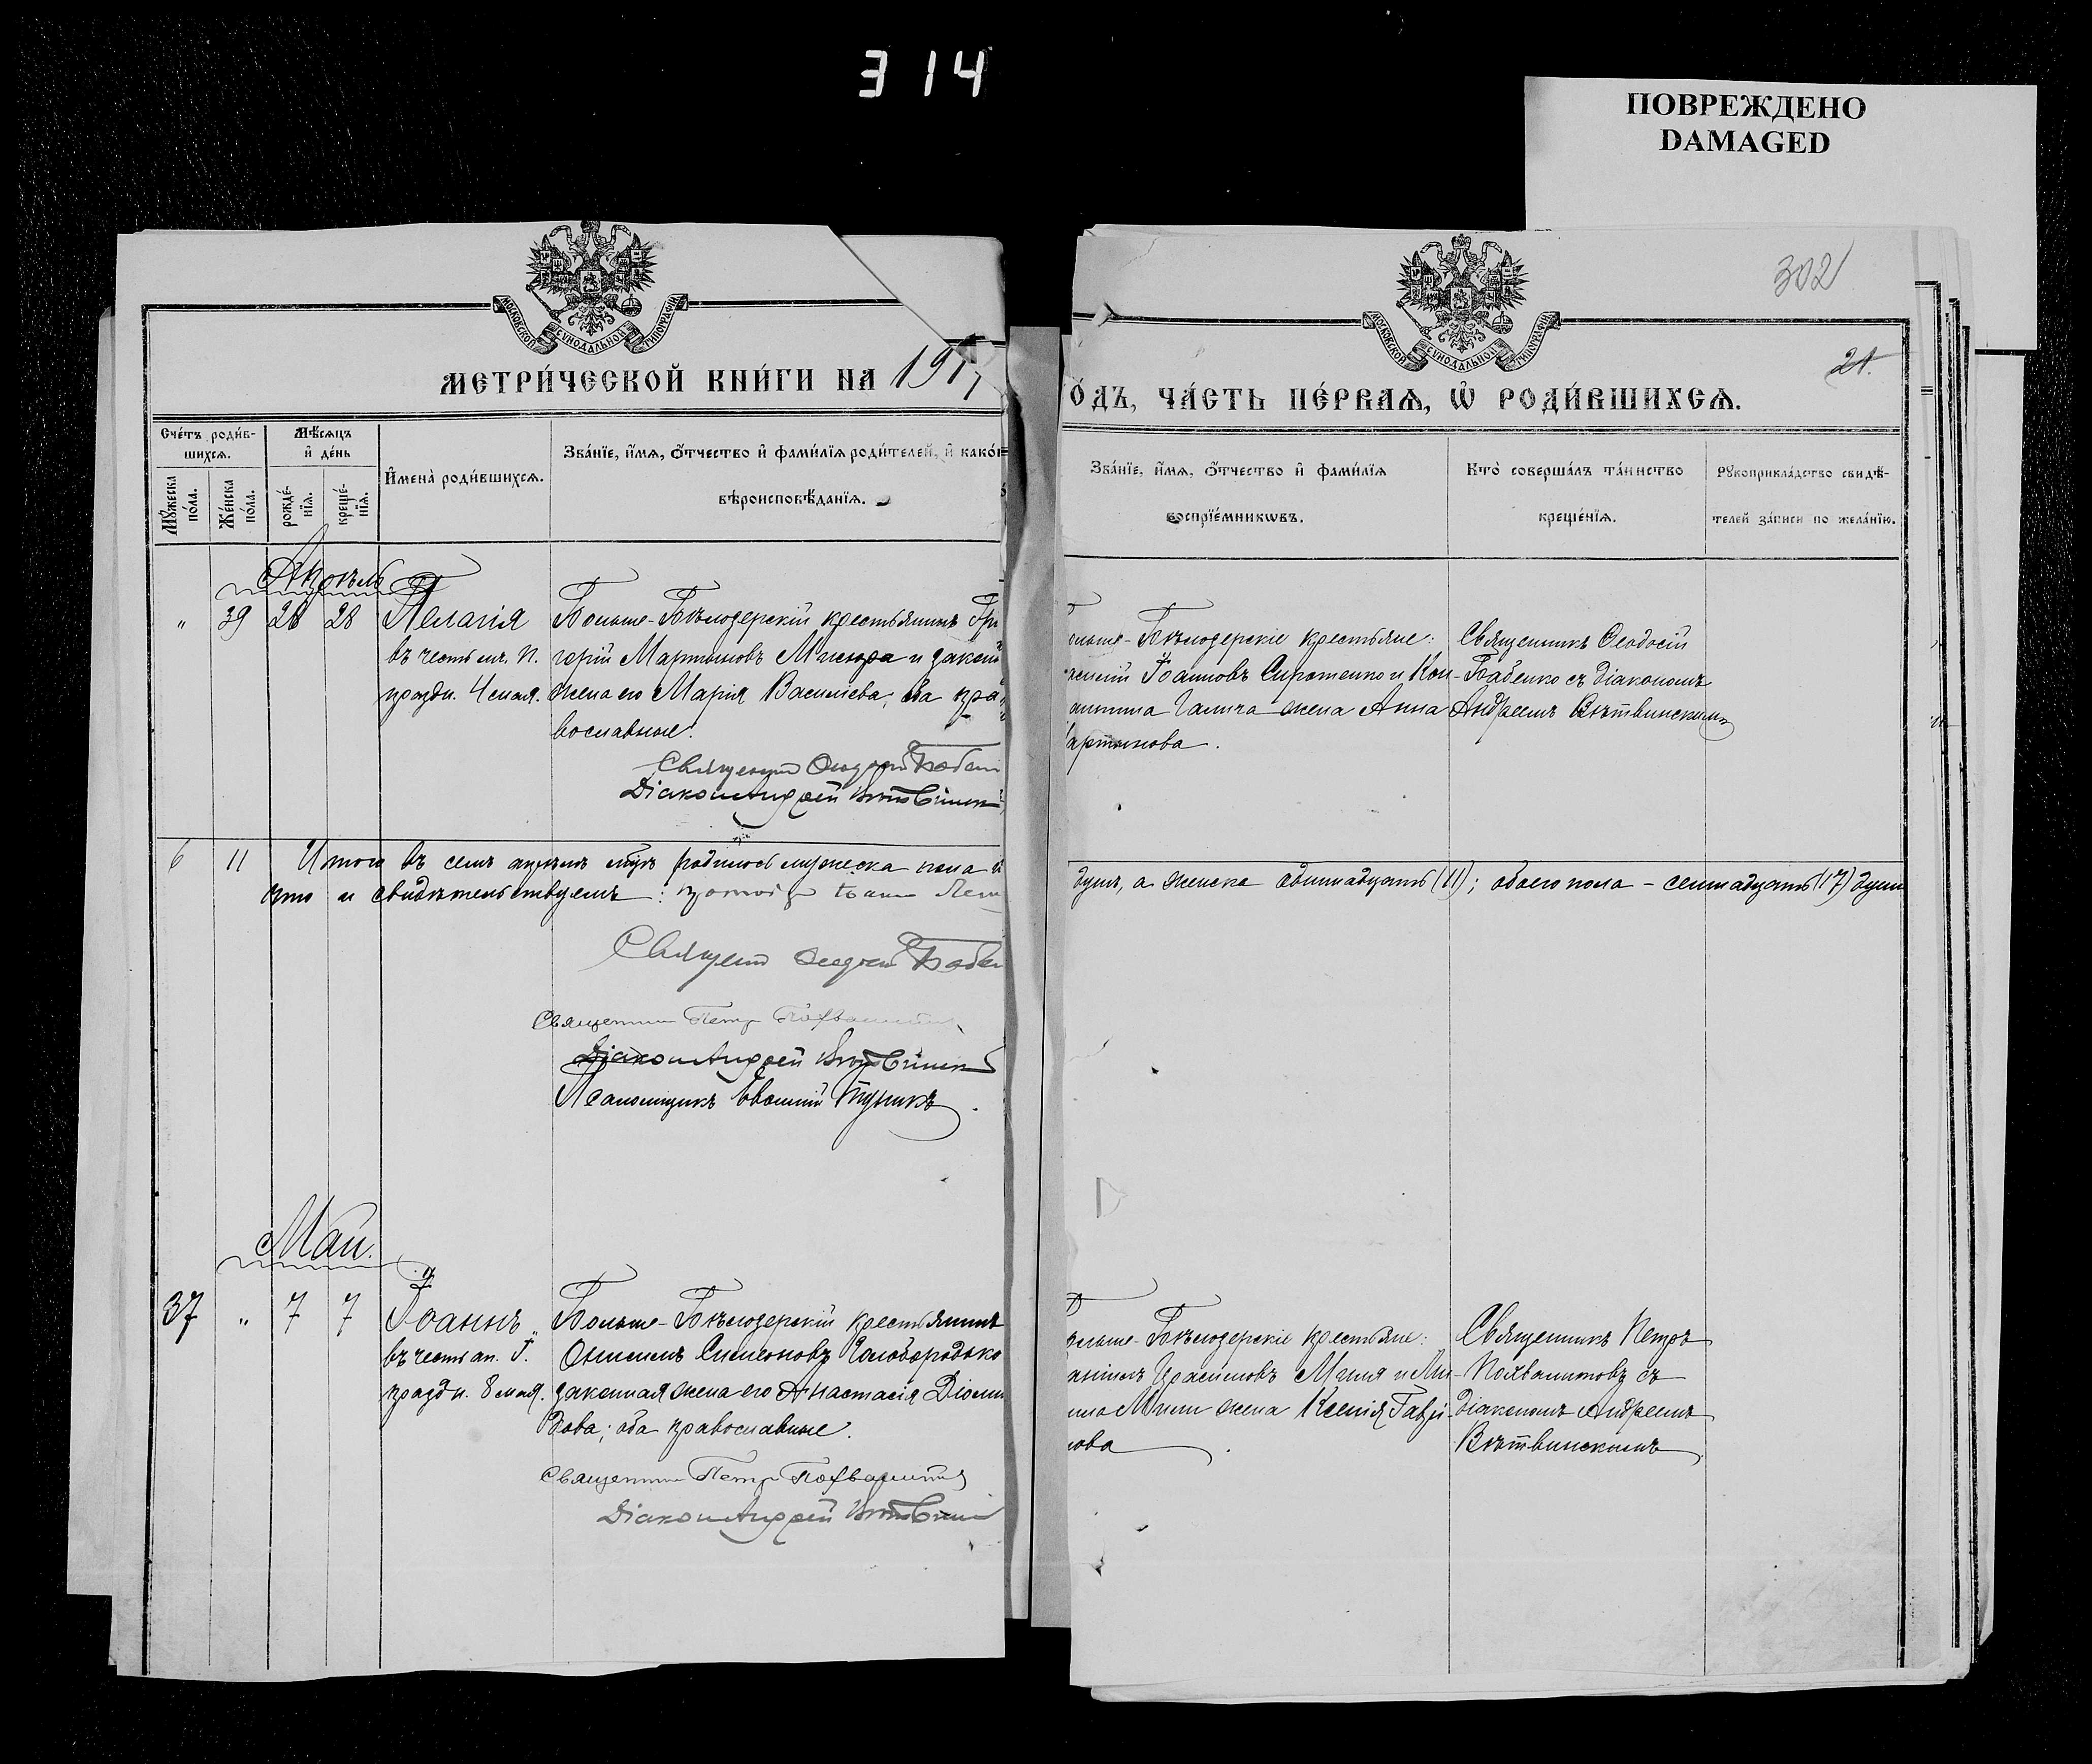 314
ПОВРЕЖДЕНО
DAMAGED
302
МОСКОВСКОЙ СѴНОДАЛЬНОЙ ТИПОГРАФІИ
МОСКОВСКОЙ СѴНОДАЛЬНОЙ ТИПОГРАФІИ
21.
МЕТРИ́ЧЕСКОЙ КНИ́ГИ НА 1917
О́ДЪ, ЧА́СТЬ ПЕ́РВАѦ, Ѡ҆ РОДИ́ВШИХСѦ.
Сче́тъ роди́в-
шихсѧ.
Мꙋ́жеска
по́ла.
Же́нска
по́ла.
Мѣ́сѧцъ
и҆ де́нь
рожде́-
нїѧ.
креще́-
нїѧ.
И҆мена̀ роди́вшихсѧ.
Зва́нїе, и҆́мѧ, ѻ҆́тчество и҆ фами́лїѧ роди́телей, и҆ како́
вѣроисповѣ́данїѧ.
Зва́нїе, и҆́мѧ, ѻ҆́тчество и҆ фами́лїѧ
воспрїе́мникѡвъ.
Кто̀ соверша́лъ та́инство
креще́нїѧ.
Рꙋкоприкла́дство свидѣ́-
телей за́писи по жела́нїю.
Апрѣль
" 39 26 28 Пелагія
въ честь мч. П.
праздн. 4 мая.
Больше-Бѣлозерскій крестьянинъ Гри
горій Мартыновъ и закон
жена его Марія Васильева, оба пра
вославные.
Священ Ѳеодосій Бабен
Діаконъ Андрей Вѣтвински
ольше-Бѣлозерскіе крестьяне:
Іоанновъ Сиротенко и Кон-
Галича жена Анна
артынова.
Священникъ Ѳеодосій
Бабенко съ діакономъ
Андреемъ Вѣтвинскимъ
6 11 Итого въ семъ апрѣлѣ м-цѣ родилось мужеска пола
душъ, а женска одиннадцать (11); обоего пола - семнадцать (17) душъ
что и свидѣтельствуемъ:
Священ Ѳеодосій Бабен
Священникъ Петръ Похвалитовъ
Діаконъ Андрей Вѣтвинскій
Псаломщикъ
Май.
37 " 7 7 Іоаннъ
въ честь ап. І.
праздн. 8 мая.
Больше-Бѣлозерскій крестьянинъ
Симеоновъ Голобородько
законная жена его Анастасія Діоми
дова; оба православные.
Священникъ Петръ Похвалитовъ
Діаконъ Андрей Вѣтвинскій
ольше-Бѣлозерскіе крестьяне:
жена Ксенія Гаврі-
лова
Священникъ Петръ
Похвалитовъ съ
діакономъ Андреемъ
Вѣтвинскимъ